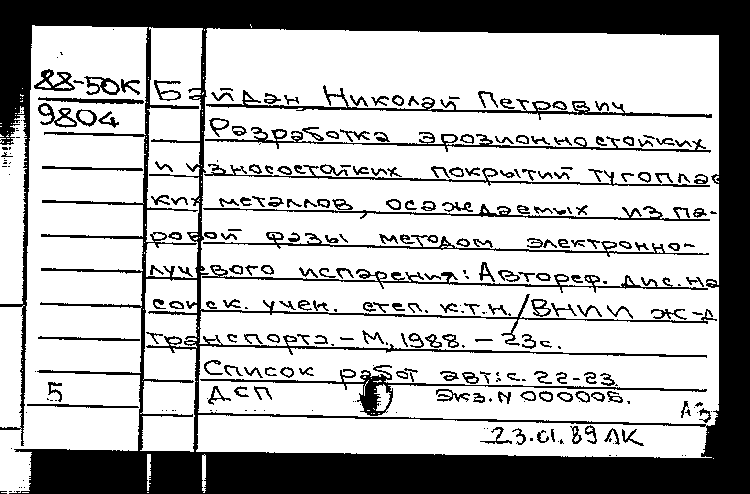 88-50К Байдан Николай Петрович
9804 Разработка эрозионностойких
и износостойких покрытий тугоплав
ких металлов, осаждаемых из па-
ровой фазы методом электронно-
лучевого испарения: Автореф. дис. на
соиск. учен. степ. к.т.н./ВНИИ ж-д
транспорта. - М., 1988. - 23с.
Список работ авт.: с. 22-23
5 ДСП экз. N 000006. АЗ
23.01.89 ЛК